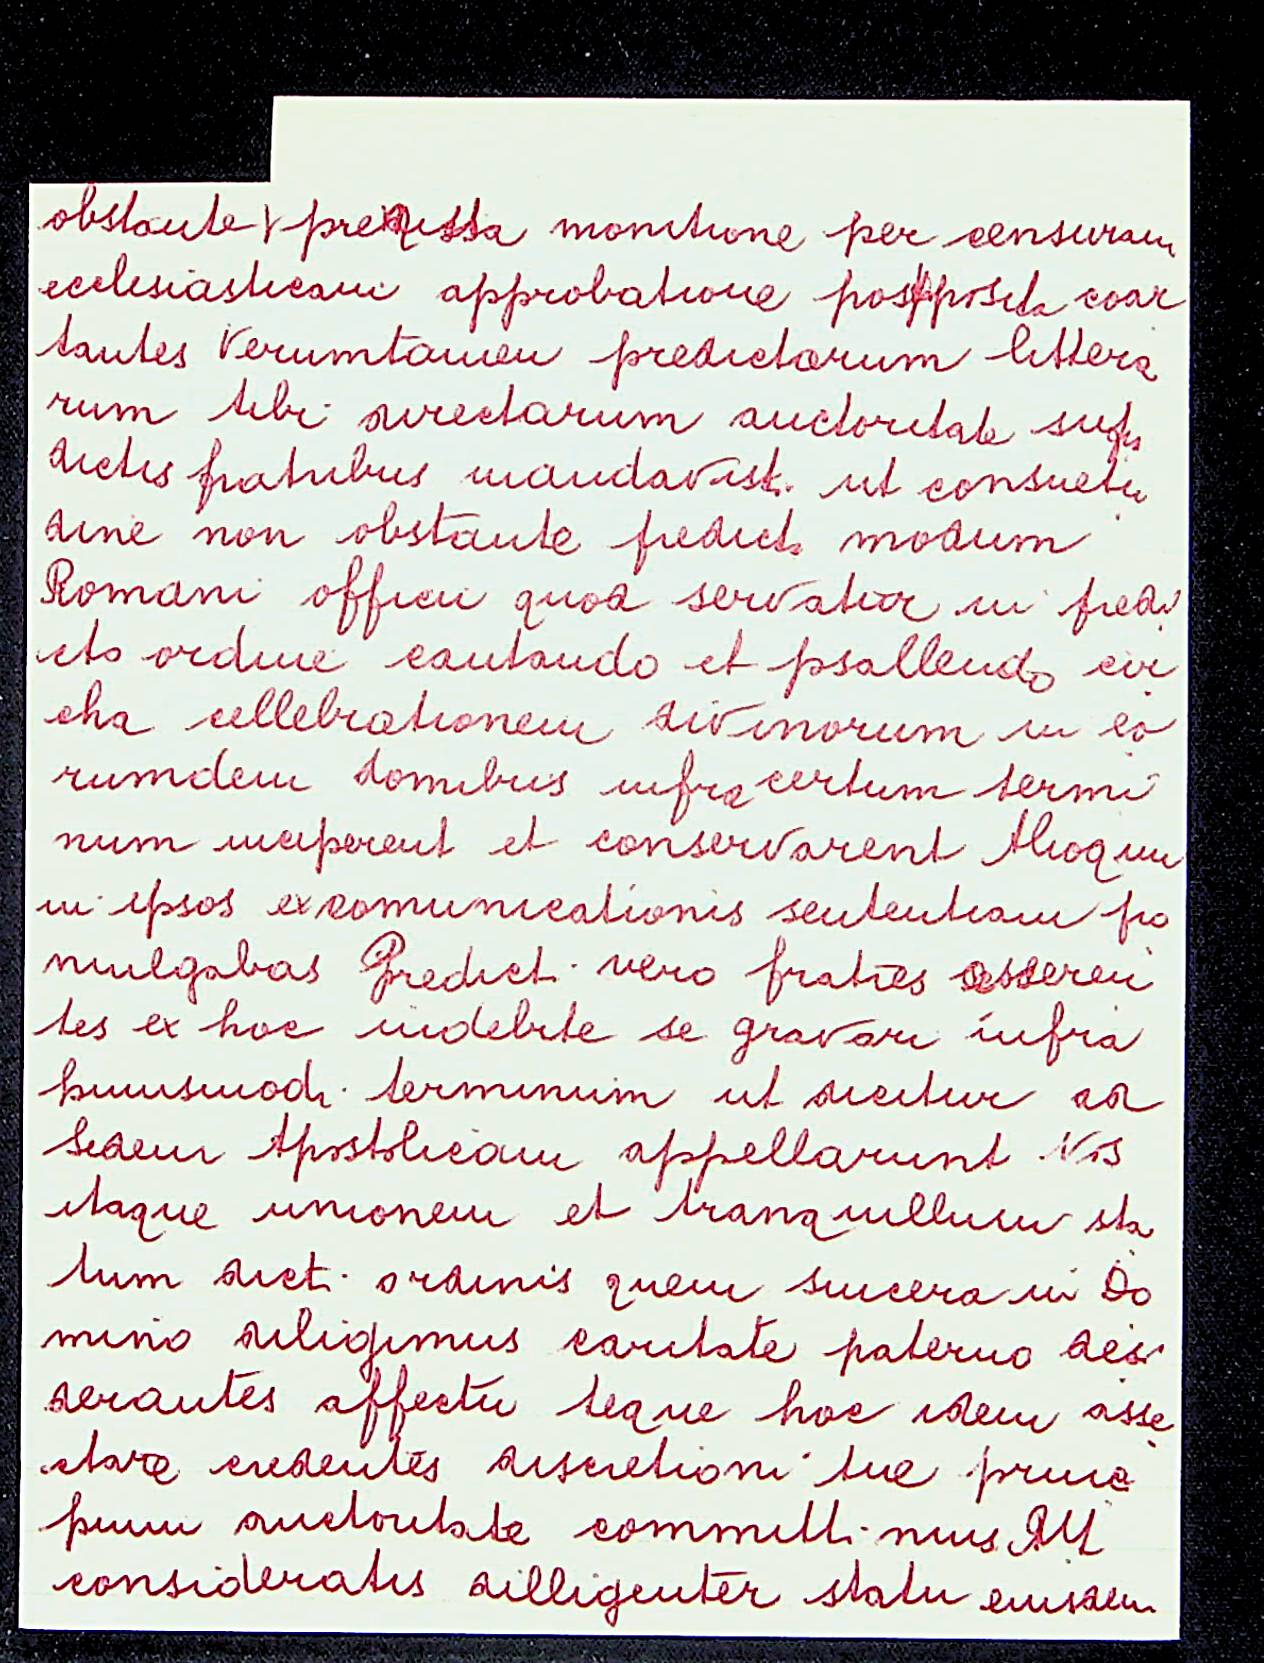 obstante premissa monitione per censuram
ecclesiasticam appellatione postposita coar
tantes Verumtamen predictarum littera
rum tibi directarum auctoritate
dictis fratribus mandavist. ut consuetu
dine non obstante predict. modum
Romani officii quod servatur in predi
cto ordine cantando et psallendo cir
cha cellebrationem divinorum in eo
rumdem domibus infra certum termi
num inciperent et conservarent Alioquin
in ipsos excomunicationis sententiam pro
mulgabas Predict. vero fratres asseren
tes ex hoc indebite se gravari infra
huiusmodi. terminum ut dicitur ad
Sedem Apostolicam appellarunt Nos
itaque unionem et tranquillum sta
tum dict. ordinis quem sincera in Do
mino diligimus caritate paterno desi
derantes affectu teque hoc idem affe
ctare credentes discretioni tue
auctoritate committimus Ut
consideratis dilligenter statu eiusdem